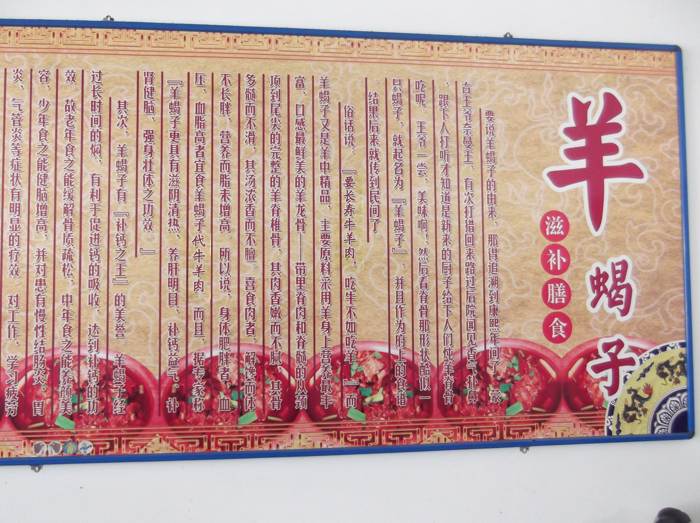 羊蝎子
滋补膳食
要说羊蝎子的由来，那得追溯到康熙年间了，蒙
古王爷奈曼王，有次打猎回来路过后院闻见香气扑鼻
，跟下人打听才知道是新来的厨子给下人们炖羊脊骨
吃呢，王爷一尝，美味啊，然后看脊骨那形状酷似一
只蝎子，就起名为『羊蝎子』，并且作为府上的食谱
结果后来就传到民间了
俗话说『要长寿牛羊肉，吃牛不如吃羊』，而
羊蝎子又是羊中精品，主要原料采用羊身上营养最丰
富、口感最鲜美的羊龙骨—带里脊肉和脊髓的从颈
项到尾尖的完整的羊脊椎骨，其肉香嫩而不腻，其骨
多髓而不滑，其汤浓香而不膻，喜食肉者，解馋而体
不长胖，营养而脂未增高，所以说，身体肥胖者，血
压、血脂高者宜食羊蝎子代牛羊肉，而且，据专家称
『羊蝎子更具有滋阴清热、养肝明目、补钙益气、补
肾健脑、强身壮体之功效。』
其次，羊蝎子有『补钙之王』的美誉，羊蝎子经
过长时间的焖，有利于促进钙的吸收，达到补钙的功
效，故老年食之能缓解骨质疏松，中年食之能养颜美
容，少年食之能健脑增高，并对患有慢性结肠炎、胃
炎、气管炎等症状有明显的疗效，对工作、学习疲劳